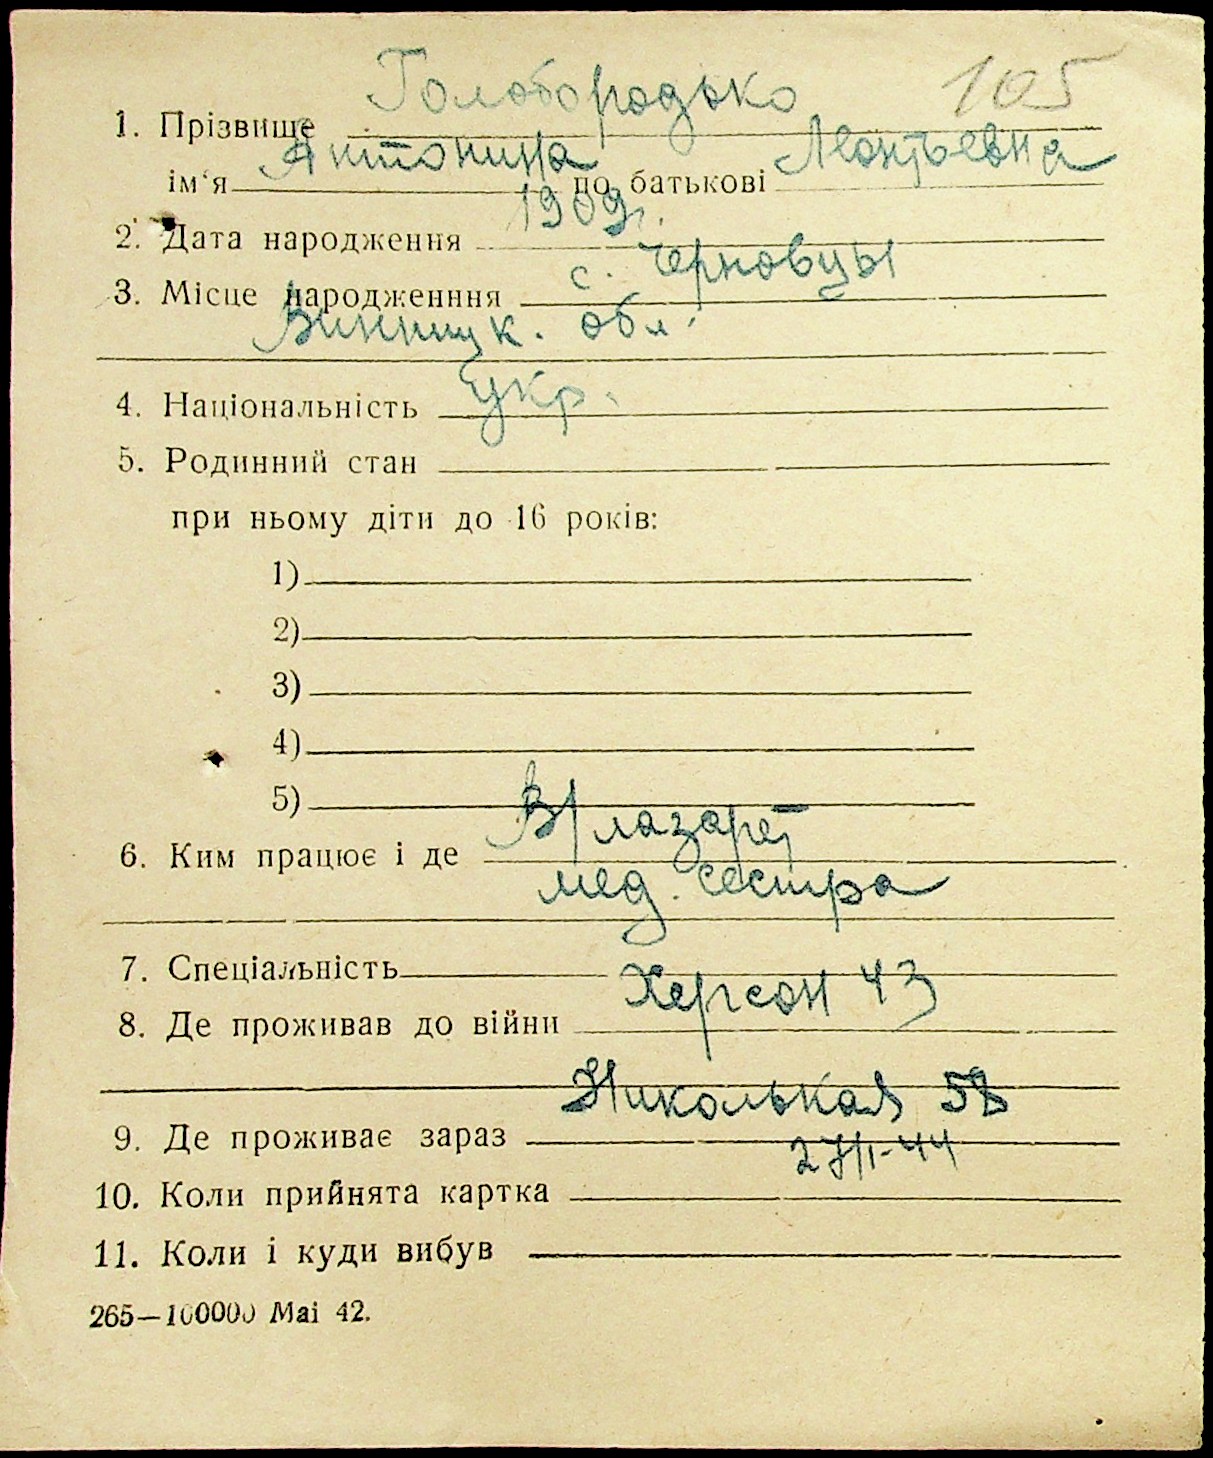 Голобородько 105
1. Прізвище
Антонина Леонтьевна
ім'я по батькові
1909г.
2. Дата народження
с. Черновцы
3. Місце народженння
Винницк. обл.
укр.
4. Національність
5. Родинний стан
при ньому діти до 16 років:
1)
2)
3)
4)
5)
В/лазарет
6. Ким працює і де
мед. сестра
7. Спеціальність
Херсон 43
8. Де проживав до війни
Николькая
9. Де проживає зараз
10. Коли прийнята картка
11. Коли і куди вибув
265—100000 Mai 42.